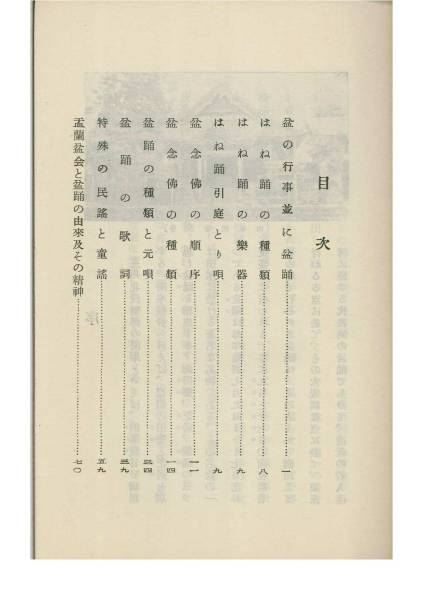 目次
盆の行事並に盆踊……一
はね踊の種類……八
はね踊の樂器……九
はね踊引庭とり唄……九
盆念佛の順序……一一
盆念佛の種類……一四
盆踊の種類と元唄……三四
盆踊の歌詞……三九
特殊の民謠と童謠……五九
盂蘭盆会と盆踊の由來及その精神……七〇
序